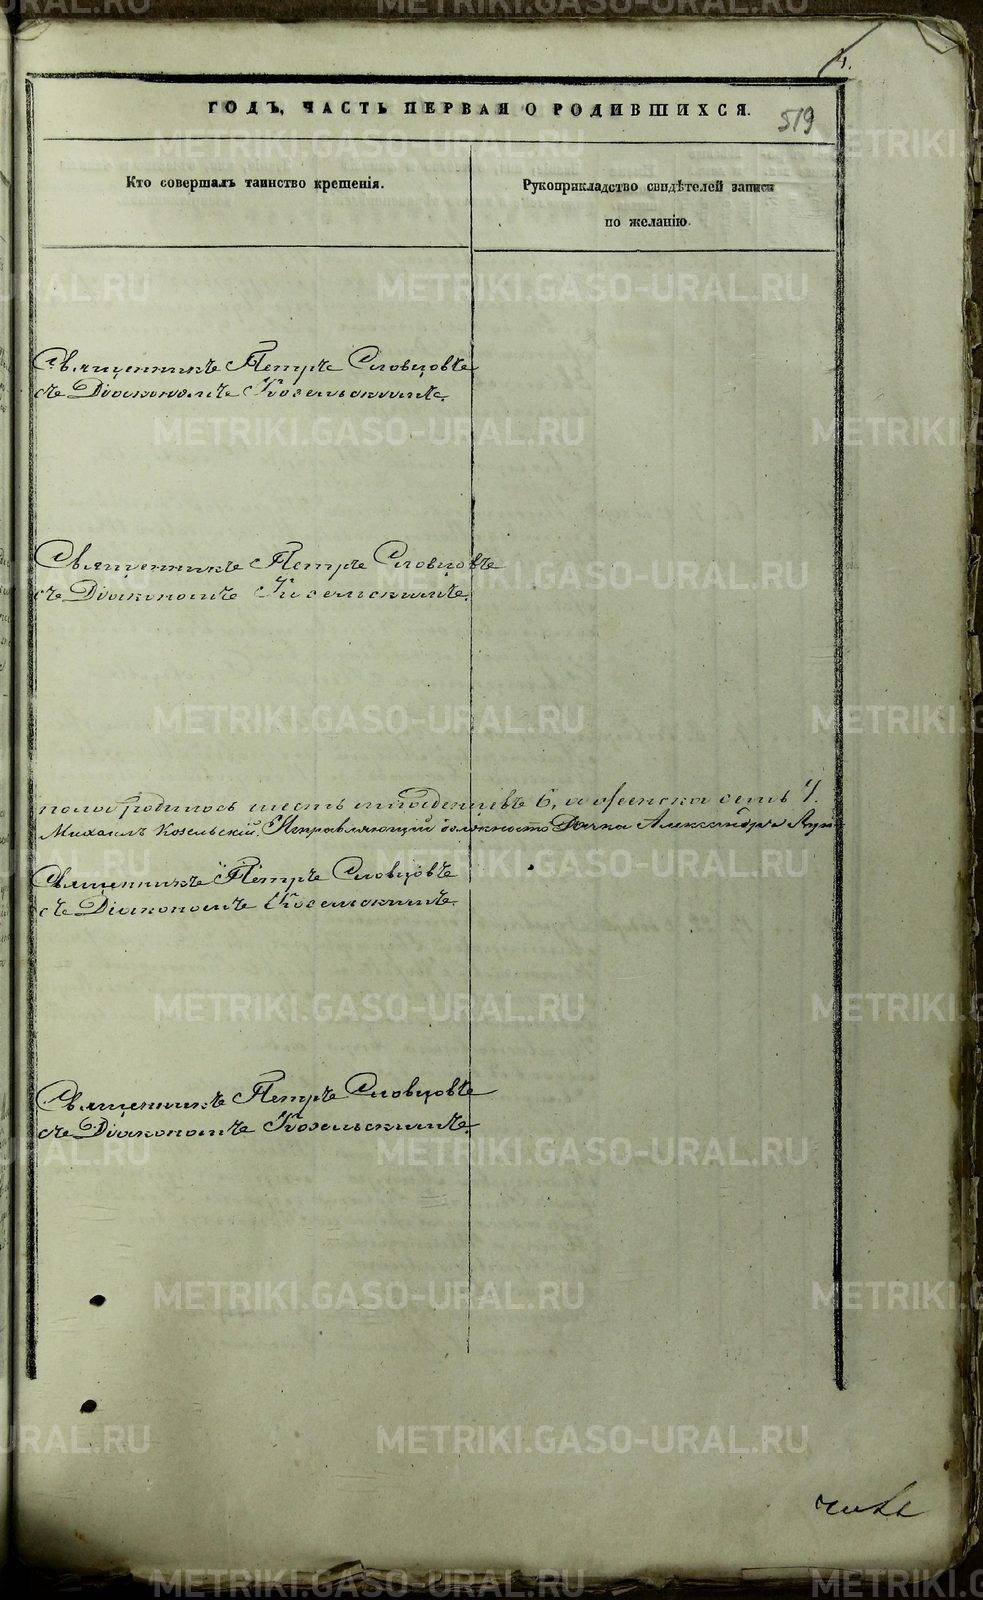 4.
ГОДЪ, ЧАСТЬ ПЕРВАЯ О РОДИВШИХСЯ.
519
Кто совершалъ таинство крещенія.
Рукоприкладство свидѣтелей записи
по желанію.
Священникъ Петръ Словцовъ
съ Діакономъ Козельскимъ.
Священникъ Петръ Словцовъ
съ Діакономъ Козельскимъ.
пола родилось шесть младенцевъ 6, а женска семь 7.
Михаилъ Козельскій. Исправляющій должность Дьячка Александръ
Священникъ Петръ Словцовъ
съ Діакономъ Козельскимъ.
Священникъ Петръ Словцовъ
съ Діакономъ Козельскимъ.
METRIKI.GASO-URAL.RU